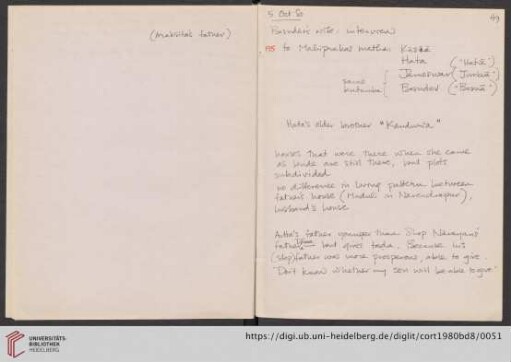 (Maksita's father)
5 Oct 80
49
Basudev's wife: interviews
85 to Maniprabas mother Kaska
Hata ("Hata")
Janeswar ("Junka")
same kutumba
Basudev ("Basna")
Hata's older brother "Kandurva"
houses that were there when she came
as bride are still there, but plots
subdivided
no difference in living pattern between
father's house (Maduli in Narendrapur),
husband's house
father younger than Narayans'
father but gives toda. Because his
(step)father was more prosperous, able to give.
"Don't know whether my son will be able to give"
UNIVERSITÄTS-
BIBLIOTHEK
HEIDELBERG
https://digi.ub.uni-heidelberg.de/diglit/cort1980bd8/0051